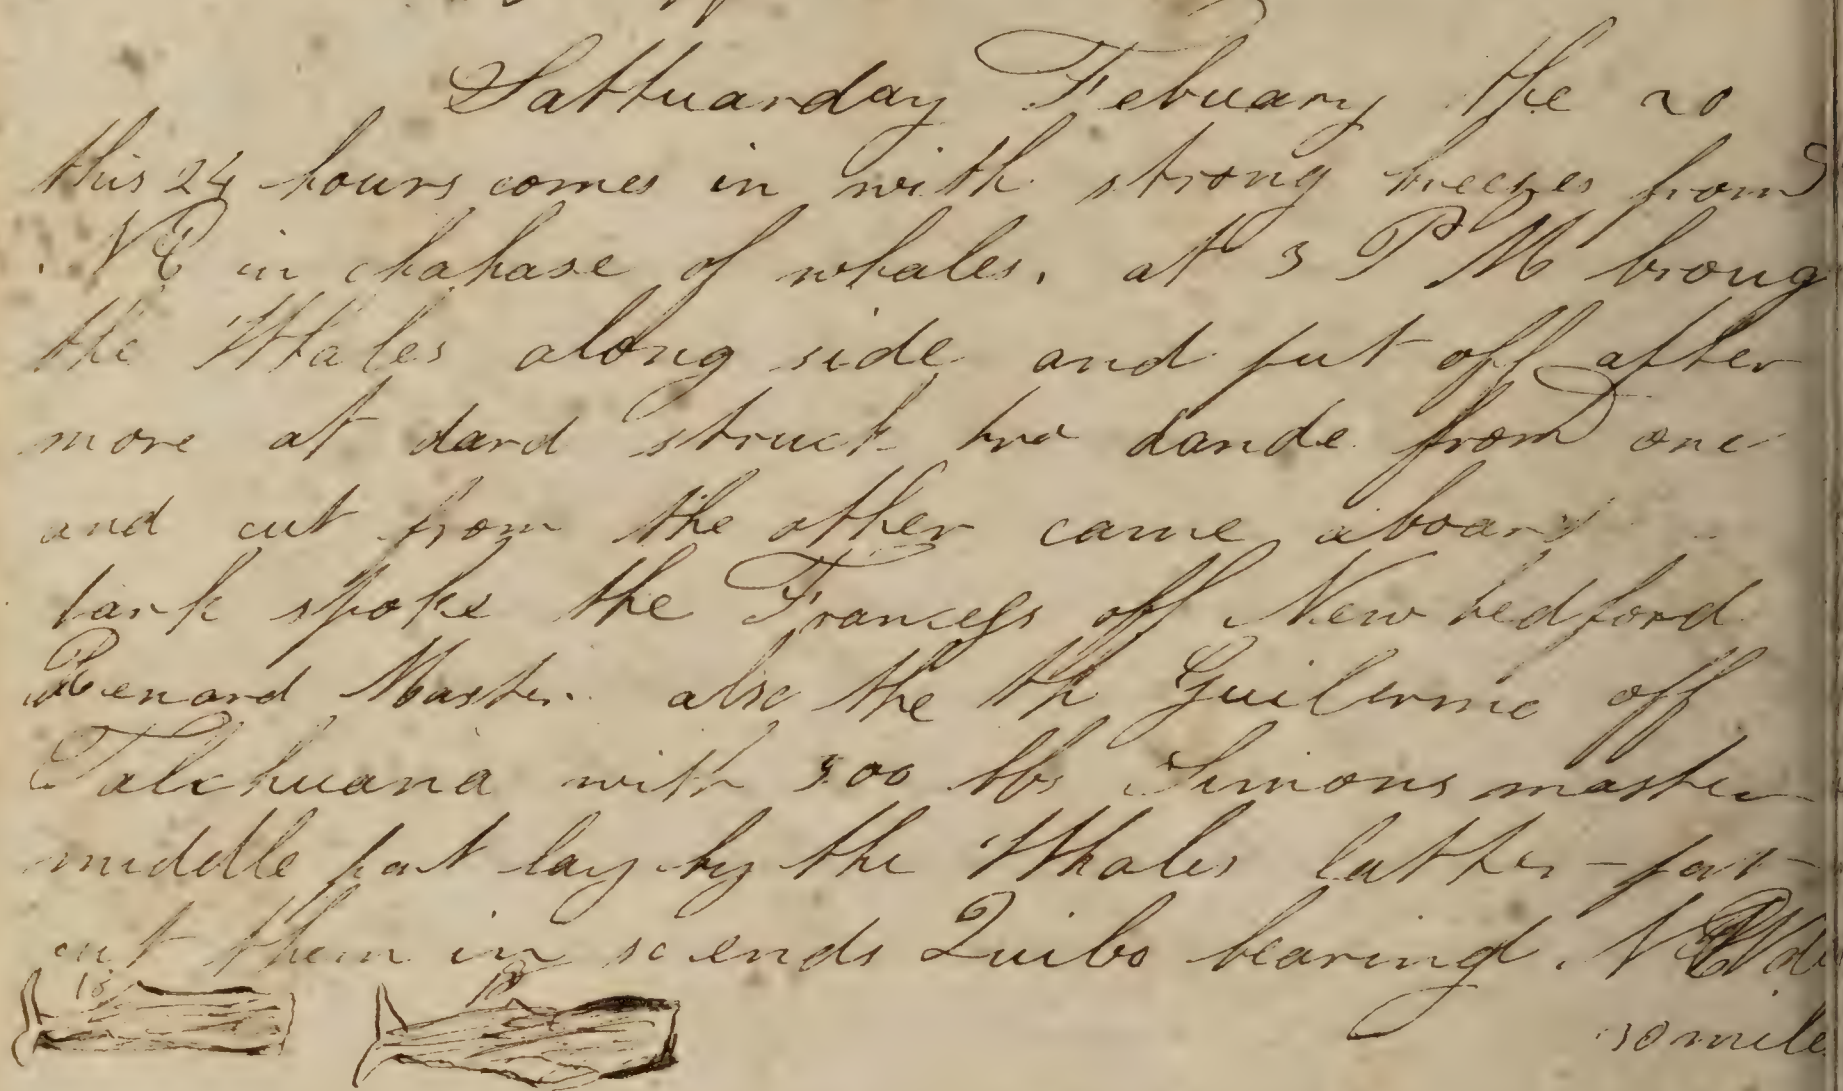 Sattuarday Febuary the 20
this 24 hours comes in with strong breezes from
NE in chahase of whales. at 3 P M broug
the Whales along side and put off after
more at dard struck two dande from one
and cut from the other came aboard
dark spoke the Francess off New bedford
enard Master also the th Guilermo off
Talchuana with 300 bbs Simons master
middle part lay by the Whales latter part
cut them in so ends Quibo bearing. N
30 mile
18 18